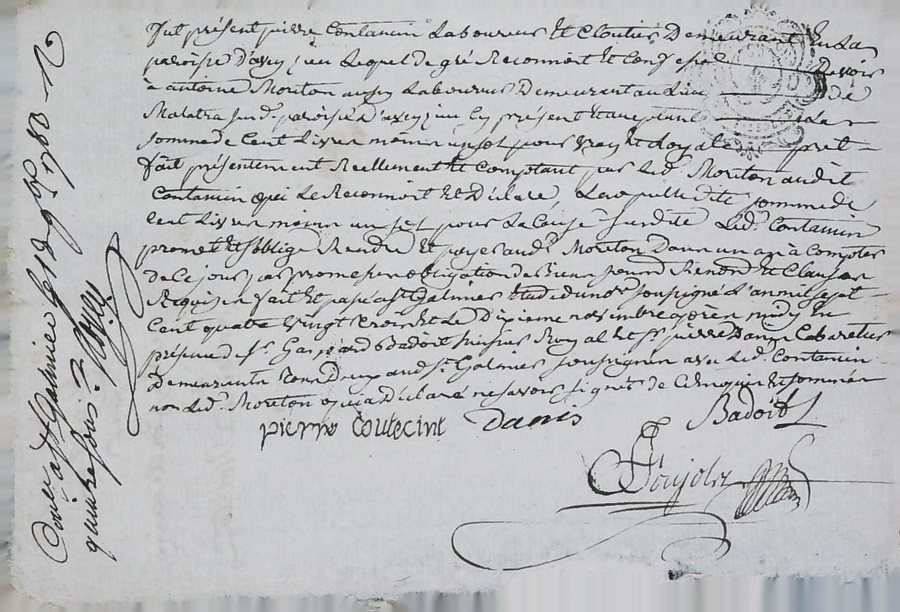 fut présent pierre Contamin Laboureur et Cloutier Demeurant en La
paroisse d'aveyzieu Lequel de gré Reconnoit et Confesse Devoir
à antoine Mouton aussy Laboureur Demeurant au Lieu de
Malatra susd. paroisse d'aveyzieu Cy présent et acceptant La
somme de Cent Livres moins un sol pour vray et Loyal prêt
fait présentement Reellement et Comptant par Led. Mouton audit
Contamin qui Le Reconnoit et Déclare, Laquelle dite somme de
Cent Livres moins un sol pour La Cause susdite Led. Contamin
promet et s'oblige Rendre et payer aud. Mouton Dans un an à Compter
de Ce jour par promesse obligation de biens soumis Renon.d et Clauses
Requises fait et passé à st Galmier Etude du nore soussigné L'an mil sept
Cent quatre vingt trois et Le Dixieme novembre après midy En
présence de sr Gaspard Badoit huissier Royal et sr pierre Danis Cabaretier
Demeurants tous Deux aud. st Galmier soussignés avec Led. Contamin
non Led. Mouton qui a déclaré ne savoir signer de Ce Enquis et sommé
pierre Coutecint Danis Badoit
Poujols
Con.lé à st Galmier le 12 9bre 1783
quinze sous